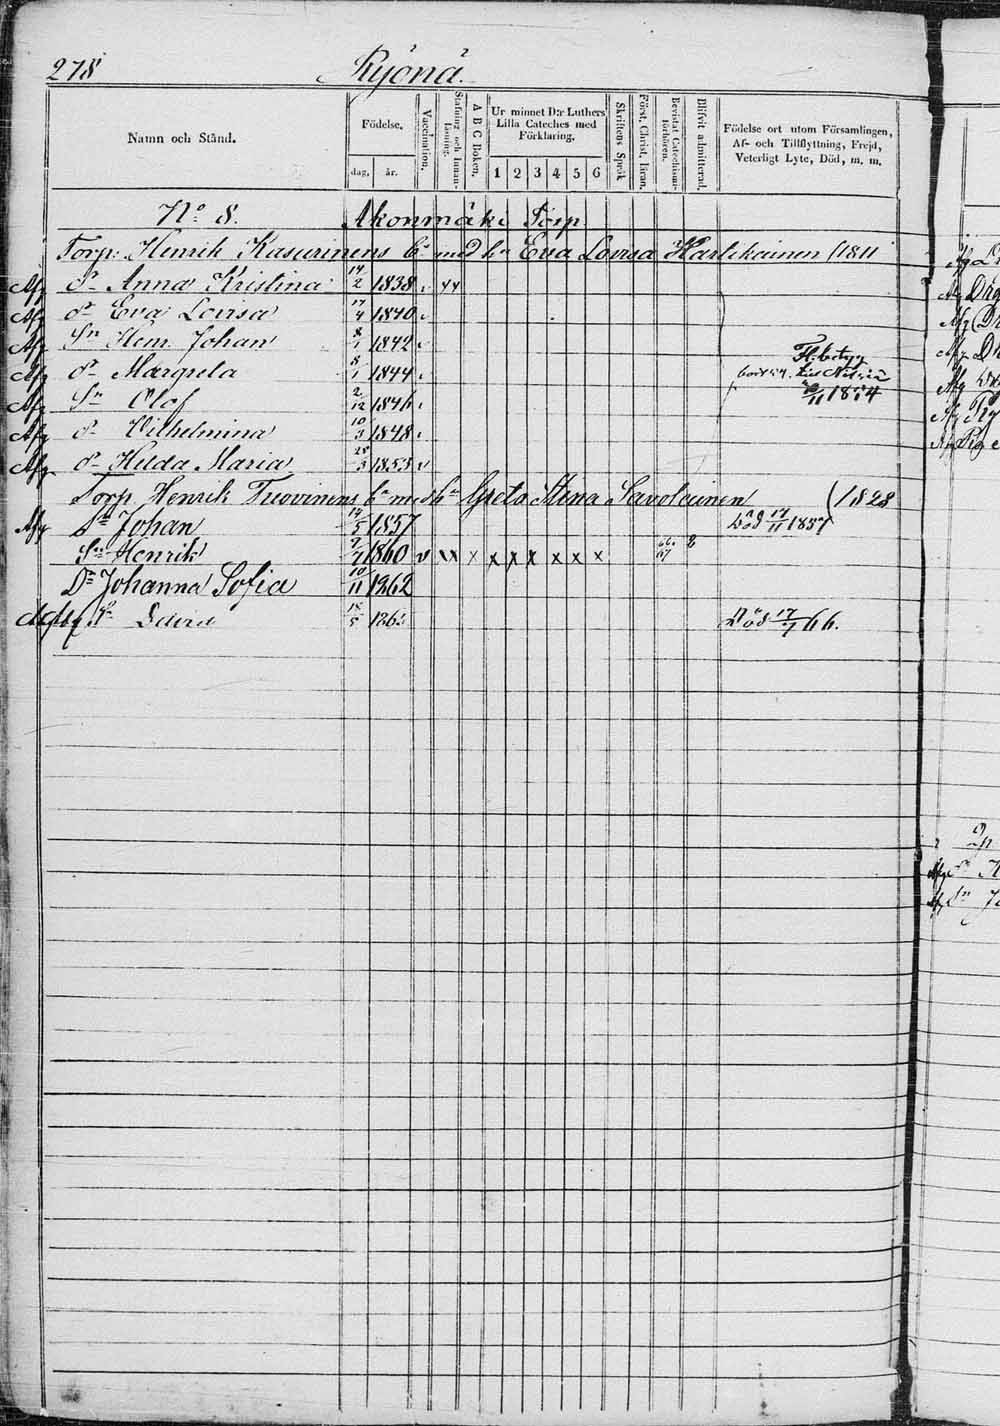 278 Ryönä.
Namn och Stånd.
Födelse.
dag. år.
Vaccination.
Stafning och Innanläsning.
A B C Boken.
Ur minnet D:r Luthers Lilla Cateches med Förklaring.
1 2 3 4 5 6
Skriftens Språk
Först. Christ. Läran.
Bevistat Catechismiförhören.
Blifvit admitterad.
Födelse ort utom Församlingen, Af- och Tillflyttning, Frejd, Veterligt Lyte, Död, m. m.
No 8. Akonmäki Torp
Torp. Henrik Kasurinens bn med hu Eva Lovisa Karhkainen (1811
Afg dr Anna Kristina 14/2 1838
Afg dr Eva Lovisa 17/4 1840
Afg Sn Henr. Johan 8/1 1842
Afg dr Margreta 8/1 1844
Afg Sn Olof 2/12 1846
Afg dr Wilhelmina 10/3 1848
Afg dr Hilda Maria 28/3 1853 v
Fl. betyg
till Nilsiä
/11 1874
Torp. Henrik Tuovinens bn med hu Greta Stina Savolainen (1828
Afg Sn Johan 14/5 1857 Död 17/11 1857
Sn Henrik 2/7 1860 v x x x x x x x 66. 67
Dr Johanna Sofia 10/11 1862
Sn David 18/5 186 Död 17/7 66.